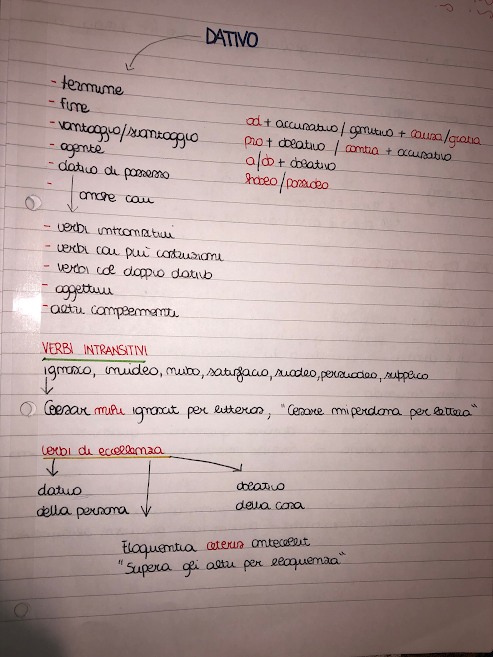 DATIVO
- termine
- fine
ad + accusativo / genitivo + causa/gratia
- vantaggio/svantaggio
pro + ablativo / contra + accusativo
- agente
a/ab + ablativo
- dativo di possesso
habeo/possideo
-
anche con
- verbi intransitivi
- verbi con più costruzioni
- verbi col doppio dativo
- aggettivi
- altri complementi
VERBI INTRANSITIVI
ignosco, invideo, nubo, satisfacio, suadeo, persuadeo, supplico
Caesar mihi ignoscit per litteras, "Cesare mi perdona per lettera"
verbi di eccellenza
dativo
della persona
ablativo
della cosa
Eloquentia ceteris antecellit
"Supera gli altri per eloquenza"